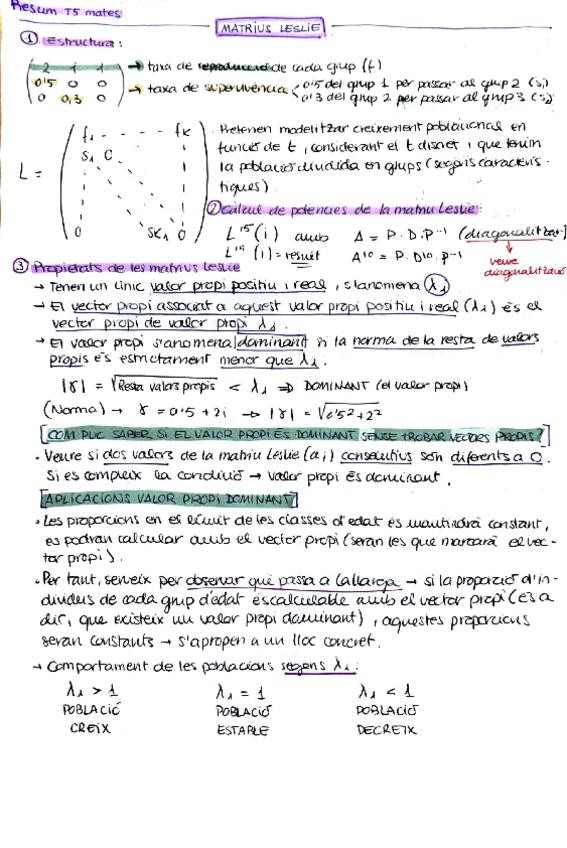 Resum T5 mates
MATRIUS LESLIE
① Estructura:
2 1 1 → taxa de reproducció de cada grup (f)
0'5 0 0 → taxa de supervivència < 0'5 del grup 1 per passar al grup 2 (s1)
0 0,3 0 0'3 del grup 2 per passar al grup 3 (s2)
L = f1 - - - - fk
S1 0
0 SK1 0
· Pretenen modelitzar creixement poblacional en
funció de t, considerant el t discret i que tenim
la població dividida en grups (segons caracterís-
tiques).
② Càlcul de potències de la matriu Leslie:
L^15 (i) amb A = P. D. P^-1 (diagonalitzar)
L^15 (i) = result A^10 = P. D^10. P^-1
veure
diagonalització
③ Propietats de les matrius Leslie
→ Tenen un únic valor propi positiu i real, s'anomena λ1
→ El vector propi associat a aquest valor propi positiu i real (λ1) és el
vector propi de valor propi λ1.
→ El valor propi s'anomena dominant si la norma de la resta de valors
propis és estrictament menor que λ1.
|γ| = √Resta valors propis < λ1 ⇒ DOMINANT (el valor propi)
(Norma) → γ = 0'5 + 2i → |γ| = √0'5² + 2²
COM PUC SABER SI EL VALOR PROPI ÉS DOMINANT SENSE TROBAR VECTORS PROPIS?
· Veure si dos valors de la matriu Leslie (ai) consecutius són diferents a 0.
Si es compleix la condició → valor propi és dominant.
APLICACIONS VALOR PROPI DOMINANT
· Les proporcions en el límit de les classes d'edat es mantindrà constant,
es podran calcular amb el vector propi (seran les que marcarà el vec-
tor propi).
· Per tant, serveix per observar què passa a la llarga → si la proporció d'in-
dividus de cada grup d'edat és calculable amb el vector propi (és a
dir, que existeix un valor propi dominant), aquestes proporcions
seran constants → s'apropen a un lloc concret.
→ Comportament de les poblacions segons λ1:
λ1 > 1 λ1 = 1 λ1 < 1
POBLACIÓ POBLACIÓ POBLACIÓ
CREIX ESTABLE DECREIX